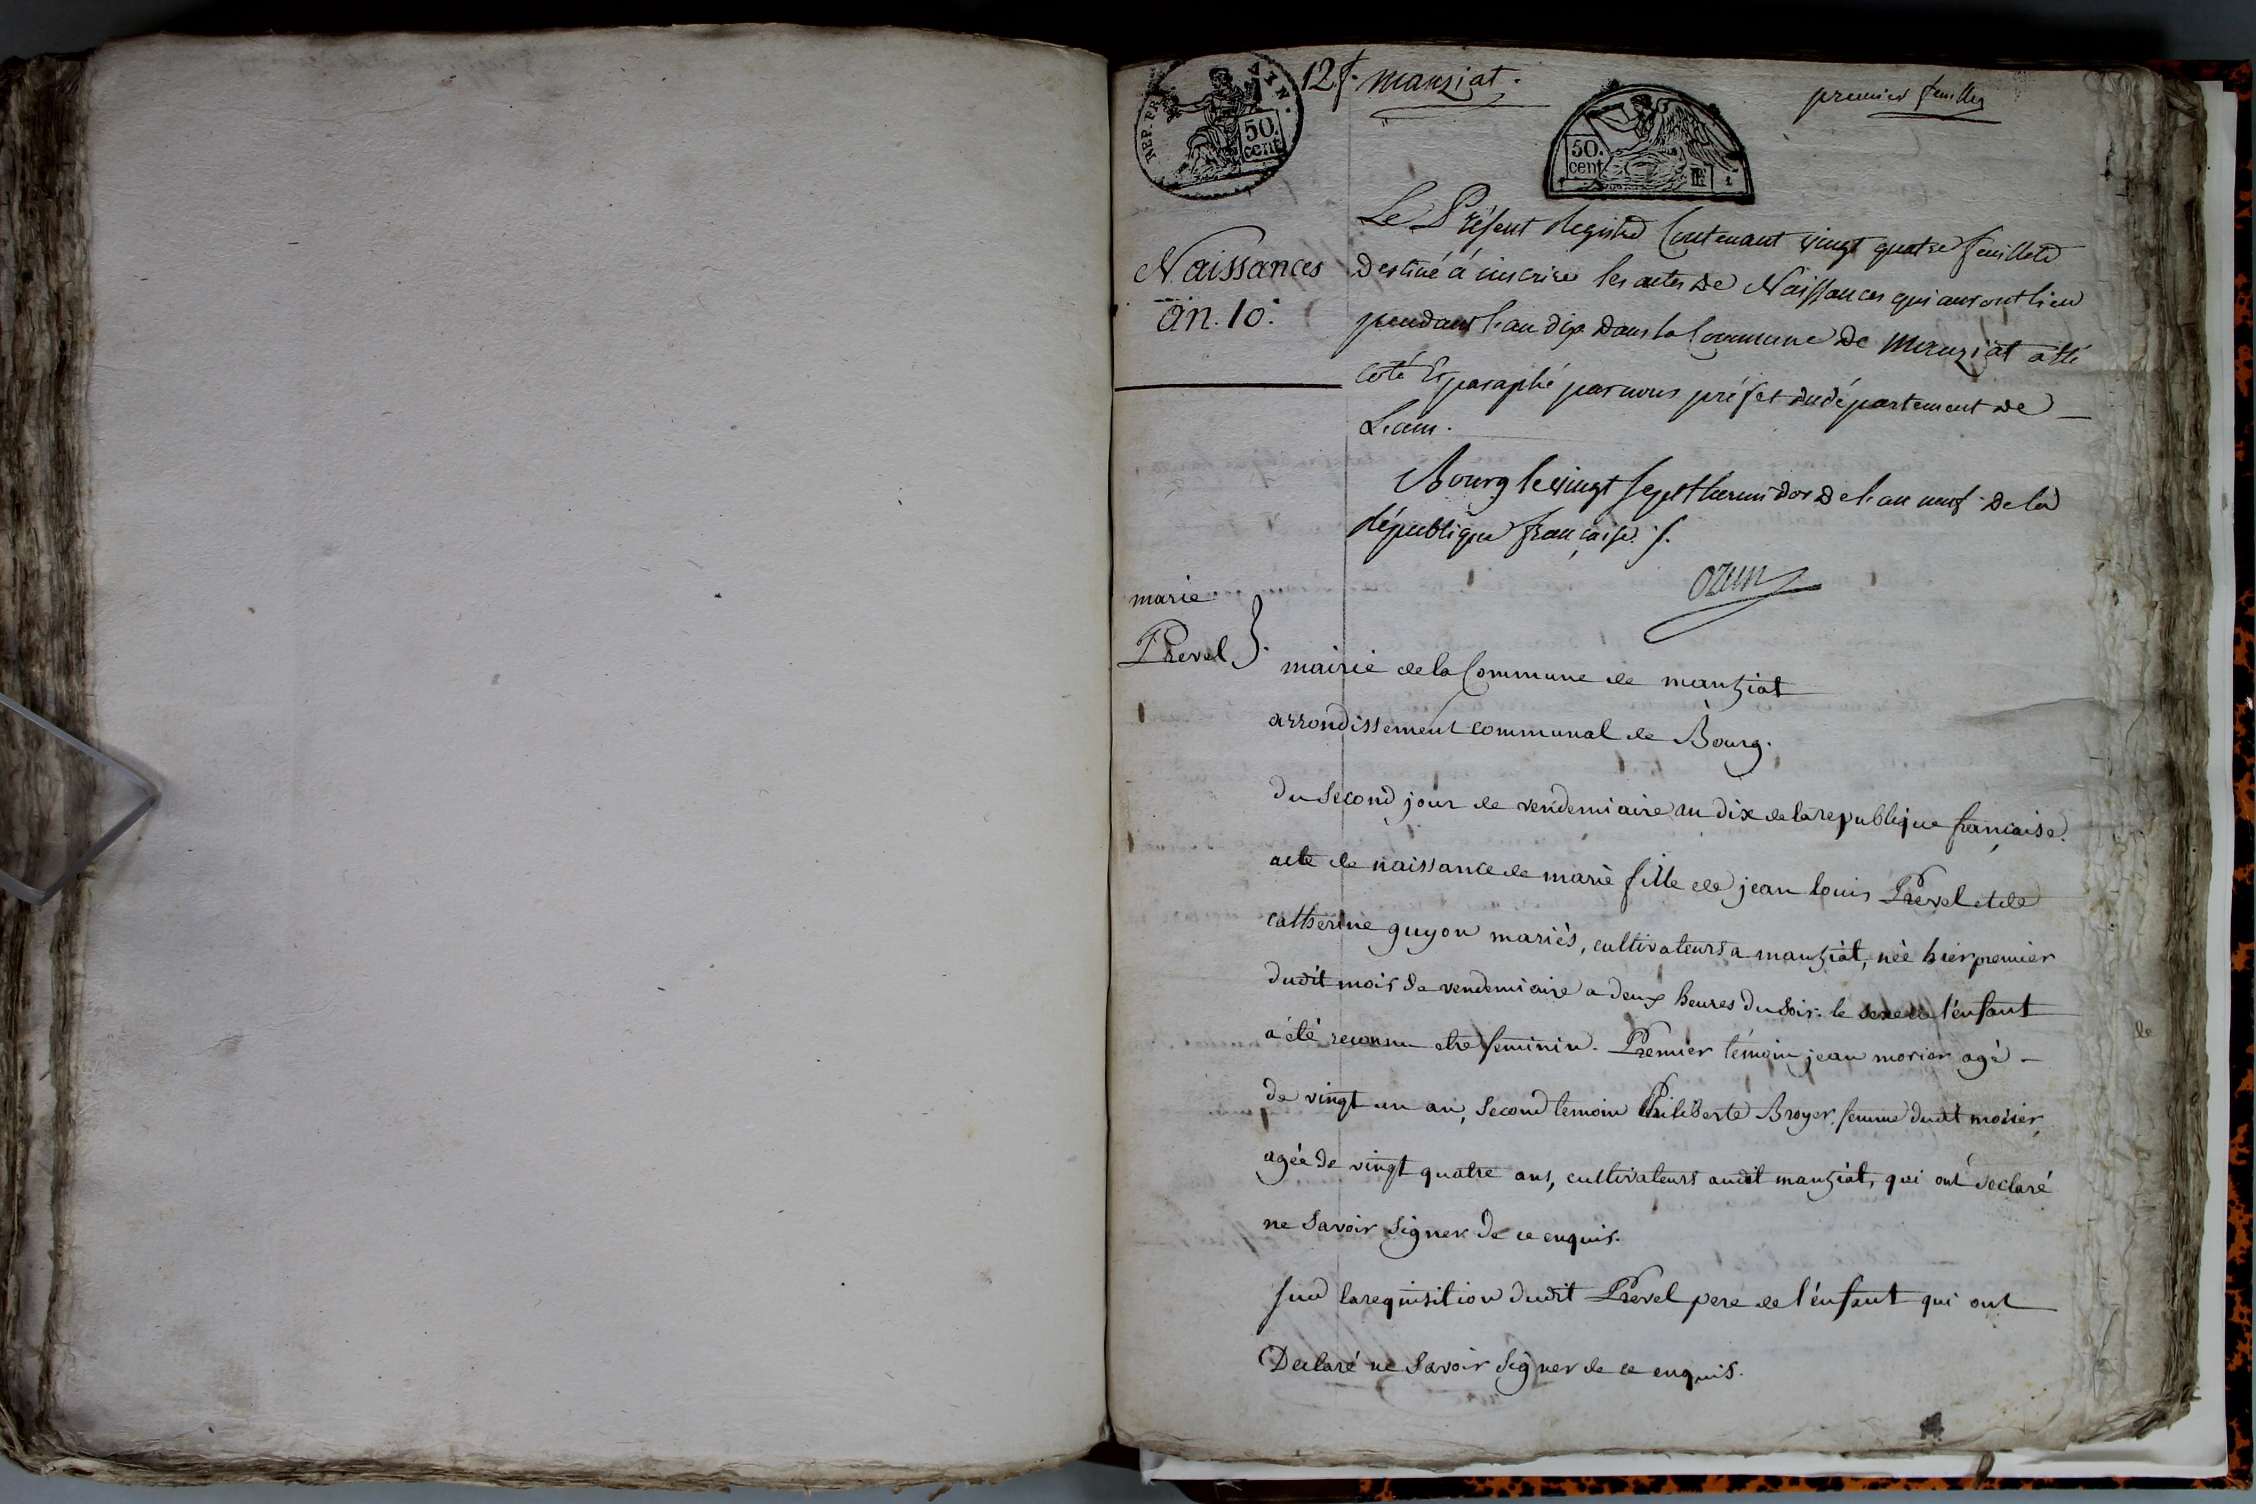 12 f. manziat.
premier feuillet
REP. FRA.
50. cent
50. cent
Naissances
an. 10.
Le Présent Registre Contenant vingt quatre feuillets
destiné à inscrire les actes de Naissances qui auront lieu
pendant l'an dix dans la Commune de Manziat a été
coté Et paraphé par nous préfet du département de
L'ain.
Bourg le vingt sept thermidor de l'an neuf de la
République française. /.
ozun
marie
Prevel }.
mairie de la Commune de manziat
arrondissement communal de Bourg.
du Second jour de vendemiaire an dix de la republique francaise.
acte de naissance de marie fille de jean louis Prevel et de
catherine guyon mariés, cultivateurs a manziat, née hier premier
dudit mois de vendemiaire a deux heures du Soir. le sexe de l'enfant
a été reconnu etre feminin. Premier témoin jean morier agé -
de vingt un an, Second temoin Philiberte Broyer femme dudit morier,
agée de vingt quatre ans, cultivateurs audit manziat, qui ont déclaré
ne Savoir Signer de ce enquis.
Sur la requisition dudit Prevel pere de l'enfant qui ont
Declaré ne Savoir Signer de ce enquis.
de